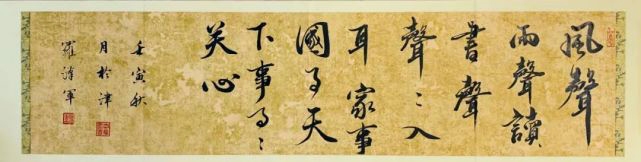 風聲
雨聲讀
書聲
聲〻入
耳家事
國事天
下事事〻
关心
壬寅秋
月於津
羅軍